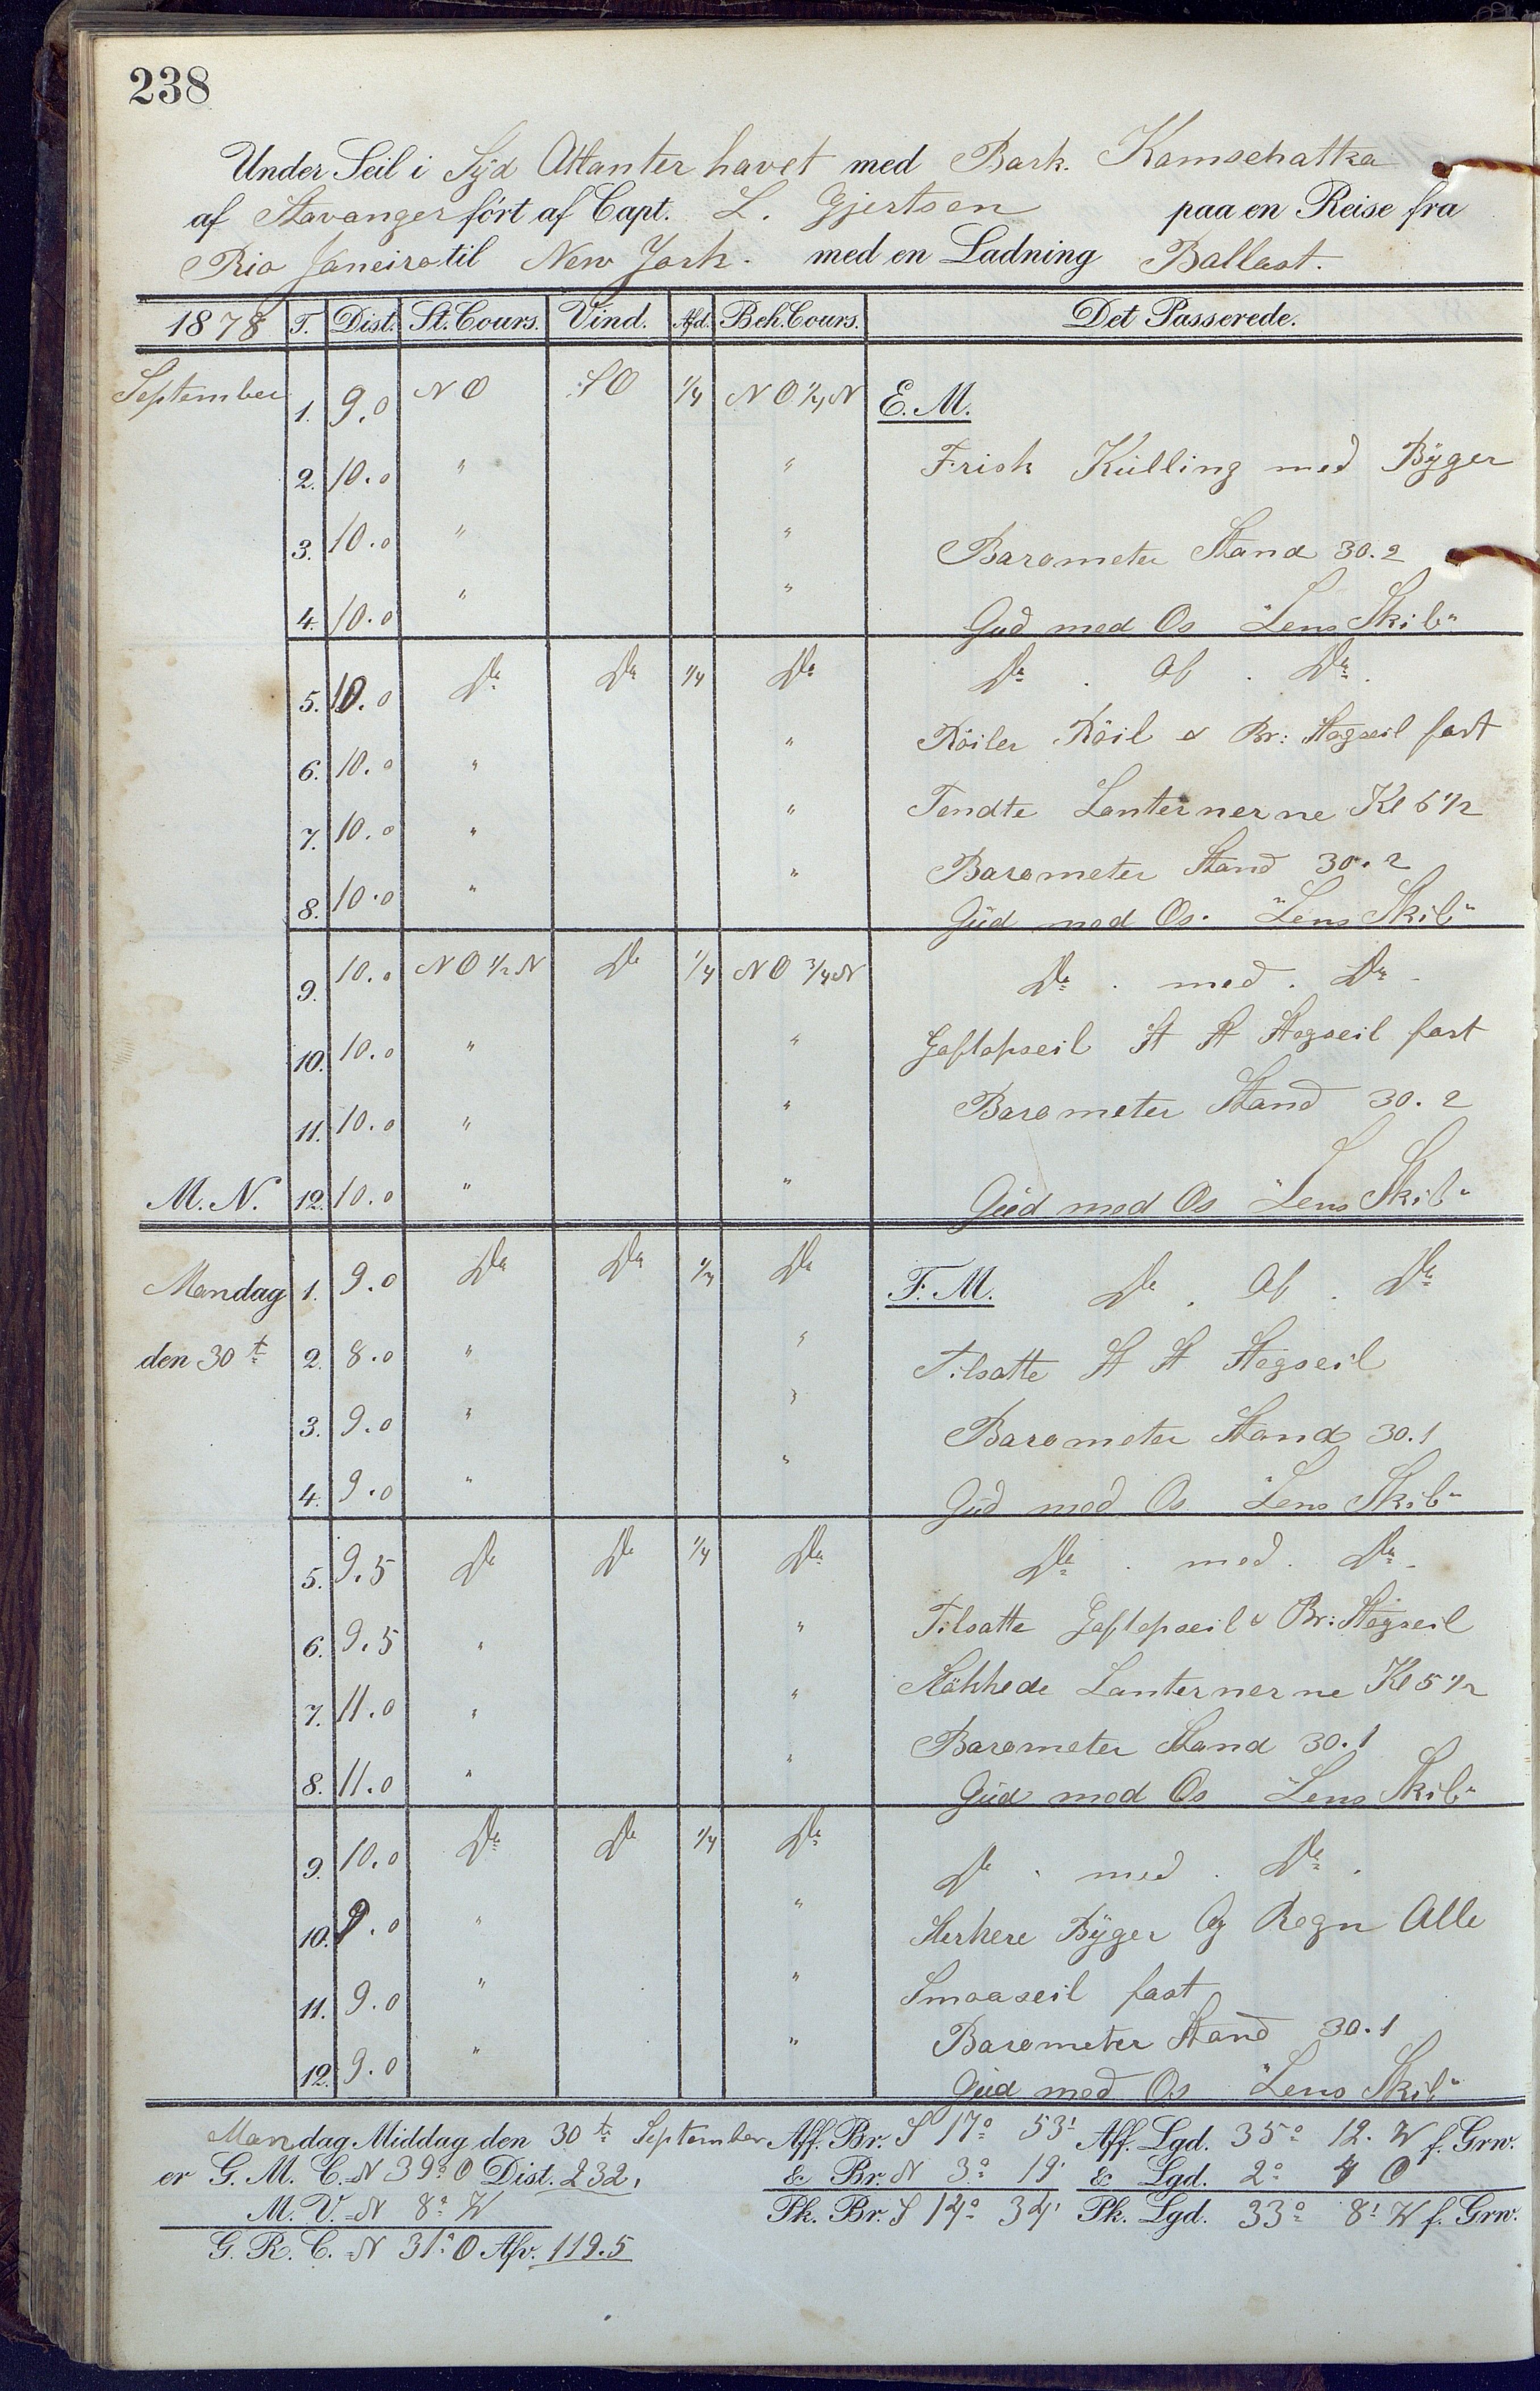 238
Under Seil i Syd Atlanter havet med Bark. Kamschatka
af Stavanger fört af Capt. L. Gjertsen paa en Reise fra
Rio Janeiro til New York. med en Ladning Ballast.
1878 T. Dist. St. Cours. Vind. Afd. Beh. Cours. Det Passerede.
September 1. 9.0 NO SO 1/4 NO 1/4 N E. M.
2. 10.0 " " Frisk Kulling med Byger
3. 10.0 " " Barometer Stand 30.2
4. 10.0 " " Gud med Os "Lens Skib"
5. 10.0 Do Do 1/4 Do Do . Af . Do .
6. 10.0 " " Röiler Röil & Br: Stagseil fast
7. 10.0 " " Tendte Lanternerne Kl 6 1/2
8. 10.0 " " Barometer Stand 30.2
Gud med Os. "Lens Skib"
9. 10.0 NO 1/2 N Do 1/4 NO 3/4 N Do . med . Do -
10. 10.0 " " Gaftopseil St St Stagseil fast
11. 10.0 " " Barometer Stand 30.2
M. N. 12. 10.0 " " Gud med Os "Lens Skib"
Mandag 1. 9.0 Do Do 1/4 Do F. M. Do . Af . Do
den 30te 2. 8.0 " " Tilsatte St St Stagseil
3. 9.0 " " Barometer Stand 30.1
4. 9.0 " " Gud med Os "Lens Skib"
5. 9.5 Do Do 1/4 Do Do . med . Do -
6. 9.5 " " Tilsatte Gaftopseil & Br: Stagseil
7. 11.0 " " Slökkede Lanternerne Kl 5 1/2
8. 11.0 " " Barometer Stand 30.1
Gud med Os "Lens Skib"
9. 10.0 Do Do 1/4 Do Do . med . Do .
10. 9.0 " " Sterkere Byger Og Regn Alle
11. 9.0 " " Smaaseil fast
12. 9.0 " " Barometer Stand 30.1
Gud med Os "Lens Skib"
Mandag Middag den 30te September Aff. Br. S 17° 53' Aff. Lgd. 35° 12. W f. Grw.
er G. M. C. N 39° O Dist. 232, & Br. N 3° 19' & Lgd. 2° 4 O
M. V. N 8° W Pk. Br. S 14° 34' Pk. Lgd. 33° 8' W f. Grw.
G. R. C. N 31° O Afv. 119.5